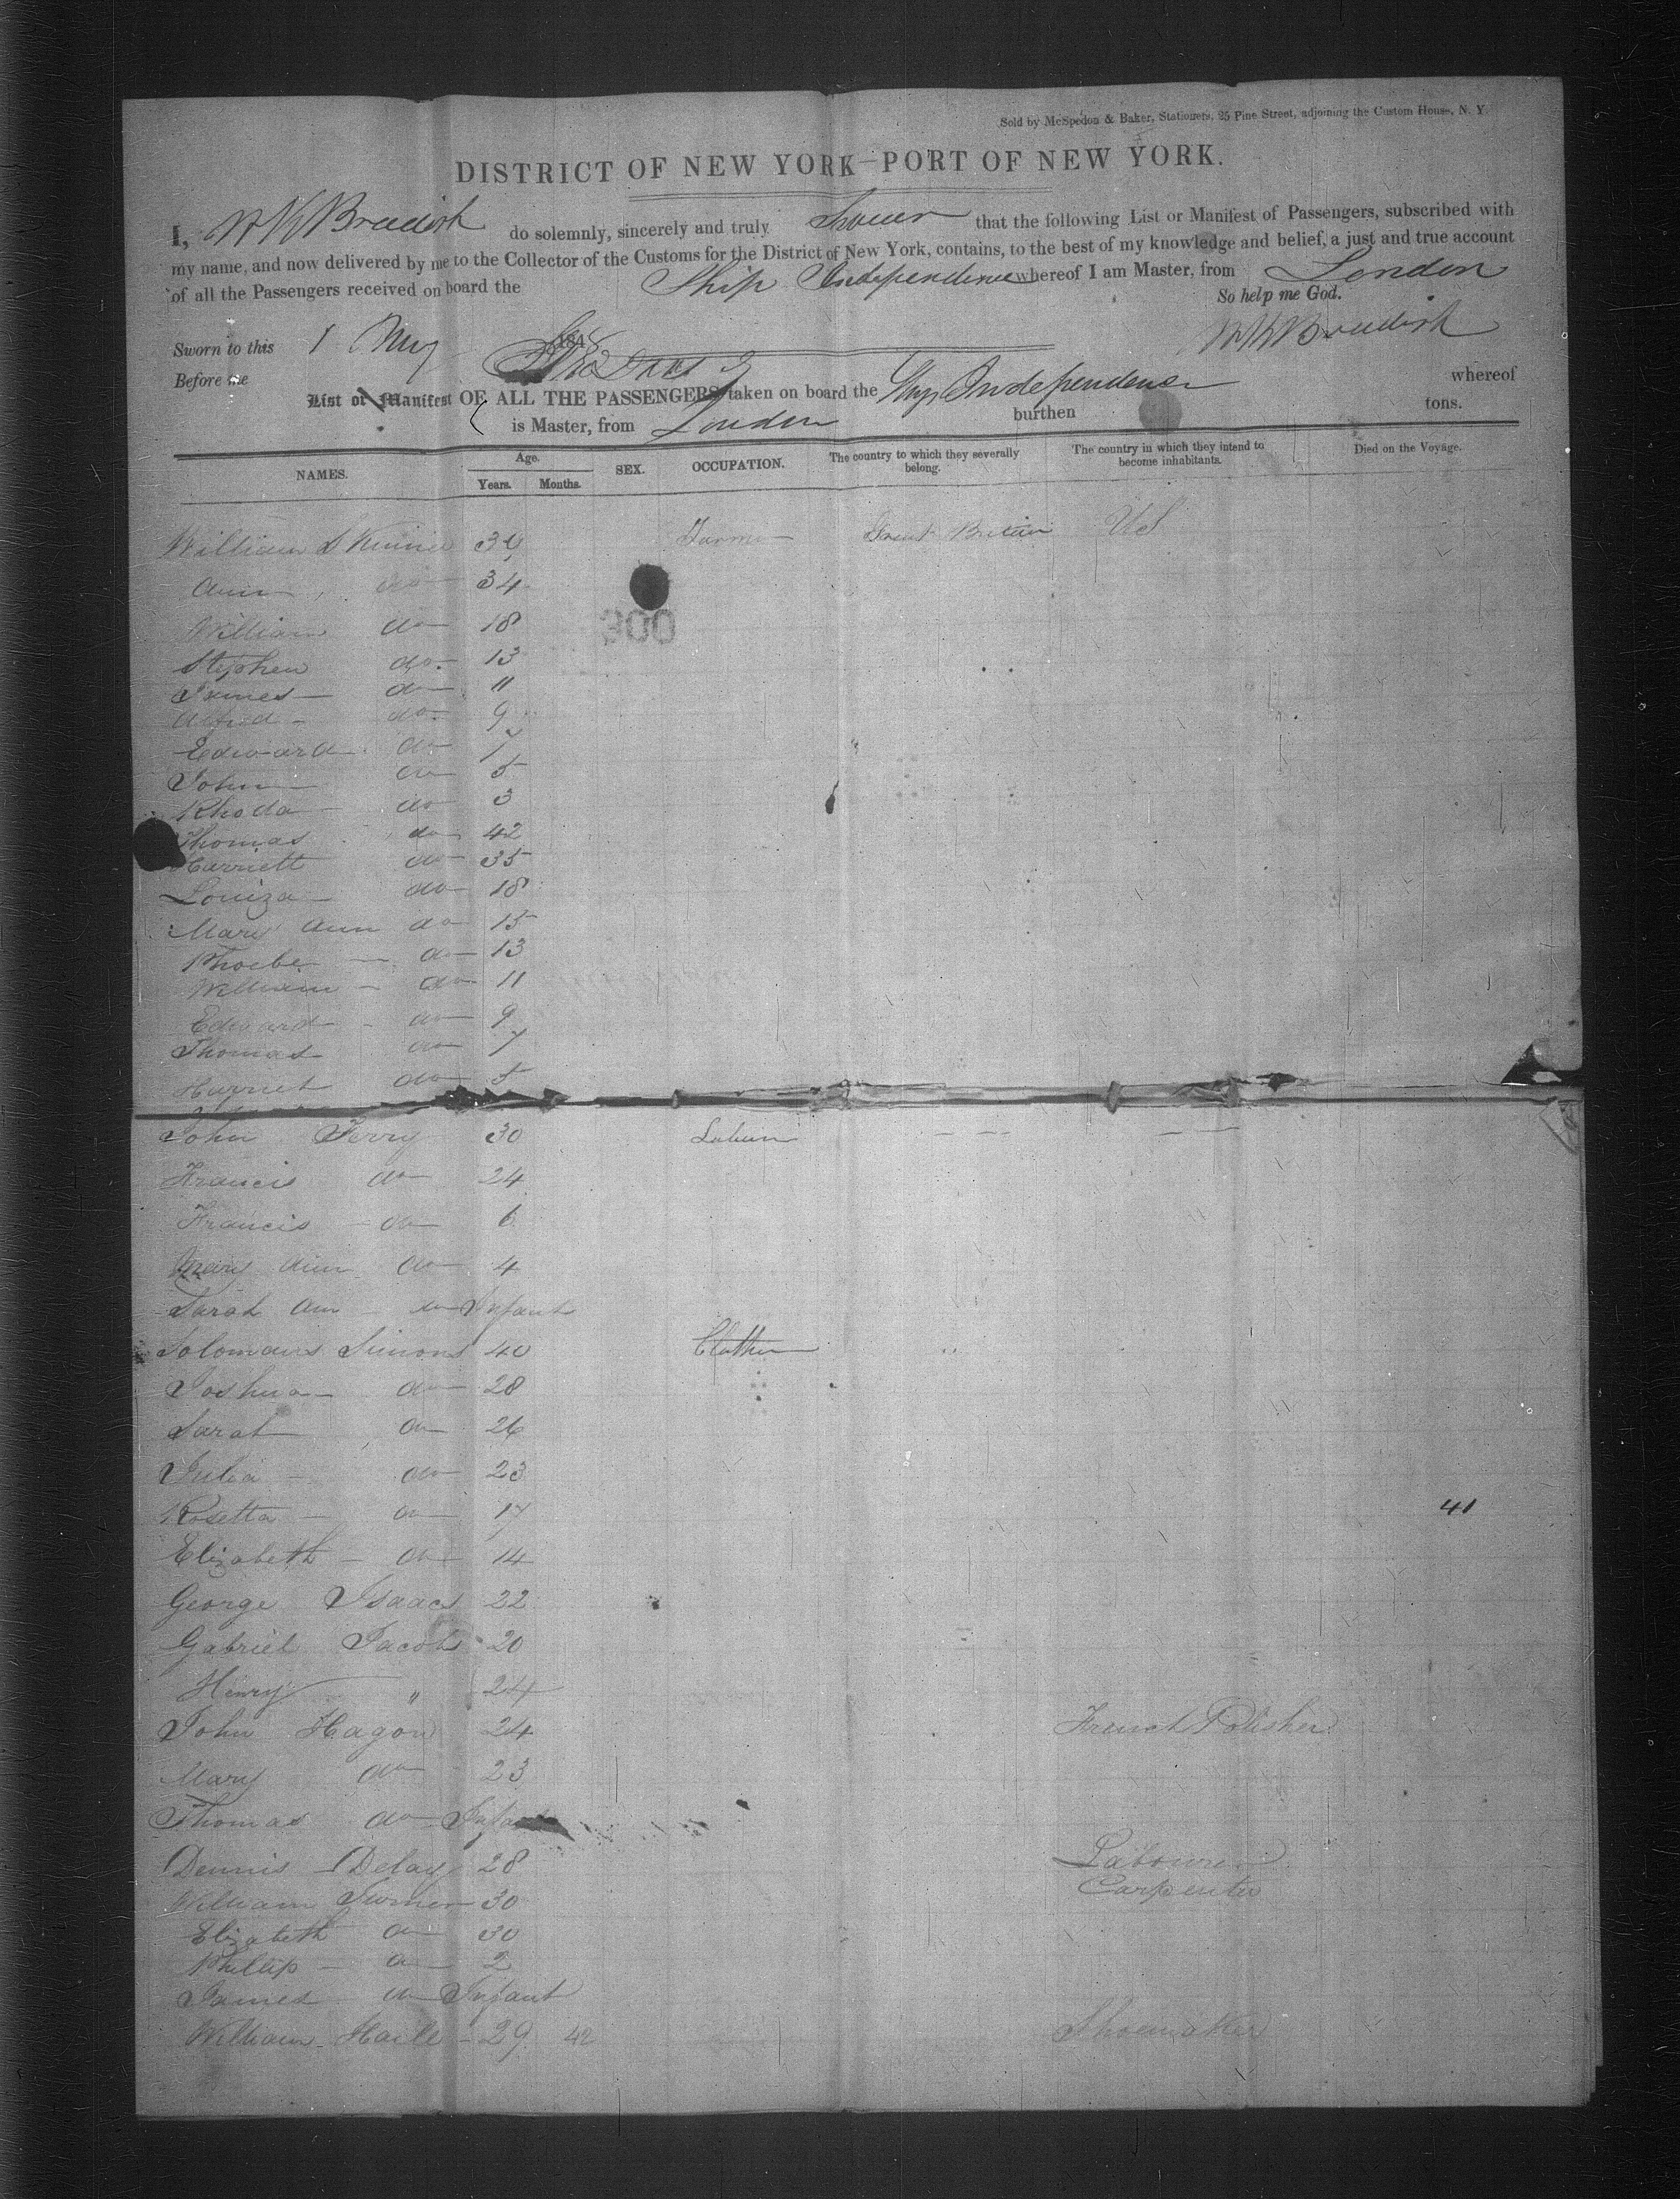 Sold by McSpedon & Baker, Stationers, 25 Pine Street, adjoining the Custom House, N. Y.
DISTRICT OF NEW YORK—PORT OF NEW YORK.
I, Bradish do solemnly, sincerely and truly swear that the following List or Manifest of Passengers, subscribed with
my name, and now delivered by me to the Collector of the Customs for the District of New York, contains, to the best of my knowledge and belief, a just and true account
of all the Passengers received on board the Ship Independence whereof I am Master, from London
So help me God.
Sworn to this 1 May 1848 Bradish
Before me
List or Manifest OF ALL THE PASSENGERS taken on board the Ship Independence whereof
is Master, from London burthen tons.
NAMES. Age. Years. Months. SEX. OCCUPATION. The country to which they severally belong. The country in which they intend to become inhabitants. Died on the Voyage.
William Skinner Farmer Great Britain US
Ann do 34
300
William do 18
Stephen do. 13
James do 11
Alfred do. 9
Edward do
John do 5
Rhoda do 3
Thomas do 42
Harriett do 35
Louiza do 18
Mary Ann do 15
Phoebe do 13
William do 11
Edward do 9
Thomas do 7
Harriet do 5
John Terry 30
Francis do 24
Francis do 6
Mary Ann do 4
Sarah Ann do Infant
Solomans Simons 40 Clothier
Joshua do 28
Sarah do 26
Julia do 23
Rosetta do 17
41
Elizabeth do 14
George Isaacs 22
Gabriel Jacobs 20
Henry " 24
John Hagon 24 French Polisher
Mary do 23
Thomas do Infant
Dennis Delay 28 Labourer
William Turner 30 Carpenter
Elizabeth do 30
Phillip do 2
James do Infant
William Haile 29 42 Shoemaker